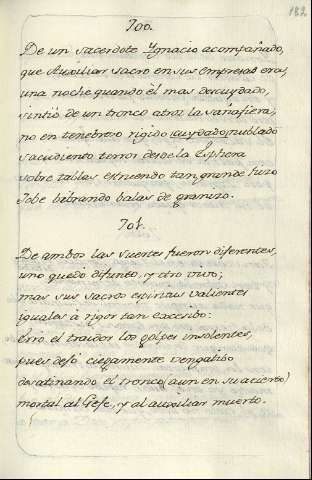 182
700.
De un sacerdote Ygnacio acompañado,
que Auxiliar sacro en sus empresas era,
una noche quando el mas descuydado,
sintió de un tronco atroz la saña fiera;
no en tenebroso rigido nublado
sacudiento terror desde la Esphera
sobre tablas estruendo tan grande hizo
Jobe bibrando balas de granizo.
701.
De ambos las suertes fueron diferentes,
uno quedó difunto, y otro vivo;
mas sus sacros espiritus valientes
iguales à rigor tan excesibo:
Erró el traidor los golpes insolentes,
pues dejó ciegamente vengatibo
desatinando el tronco (aun en su acierto)
mortal al Gefe, y al auxiliar muerto.